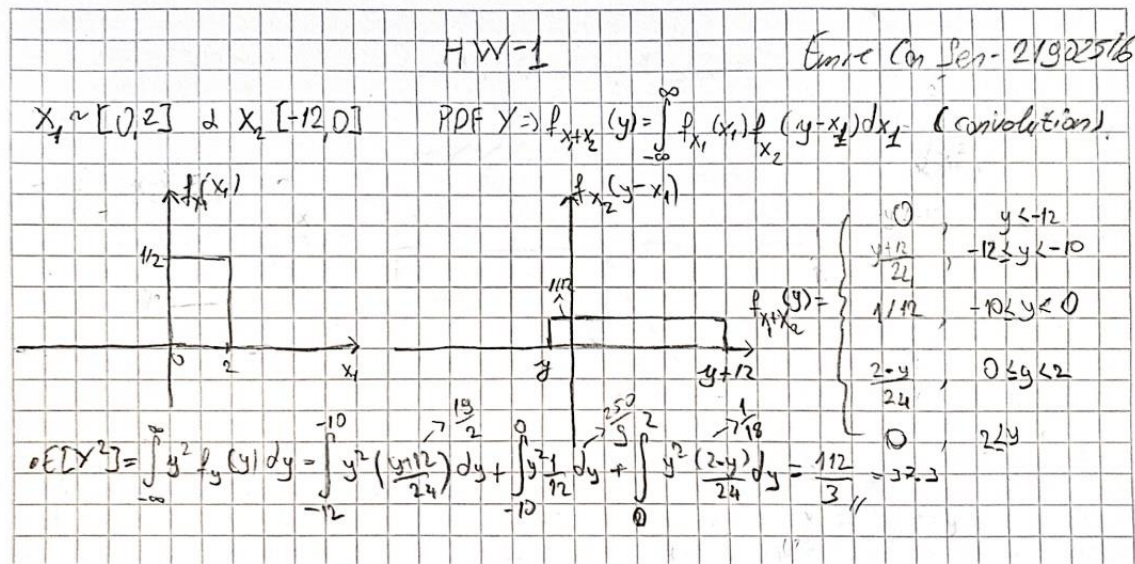 HW-1
Emre Can Şen - 21902516
X₁ ~ [0,2] & X₂ [-12,0] PDF Y ⇒ f_{X₁+X₂}(y) = ∫_{-∞}^{∞} f_{X₁}(x₁) f_{X₂}(y-x₁) dx₁ (convolution).
f_{X₁}(x₁)
1/2
0 2 x₁
f_{X₂}(y-x₁)
1/12
y y+12
f_{X₁+X₂}(y) = {
0 , y < -12
y+12/24 , -12 ≤ y < -10
1/12 , -10 ≤ y < 0
2-y/24 , 0 ≤ y < 2
0 , 2 ≤ y
19/2 250/9 1/18
• E[Y²] = ∫_{-∞}^{∞} y² f_y(y) dy = ∫_{-12}^{-10} y² (y+12/24) dy + ∫_{-10}^{0} y² 1/12 dy + ∫_{0}^{2} y² (2-y)/24 dy = 112/3 = 37.3